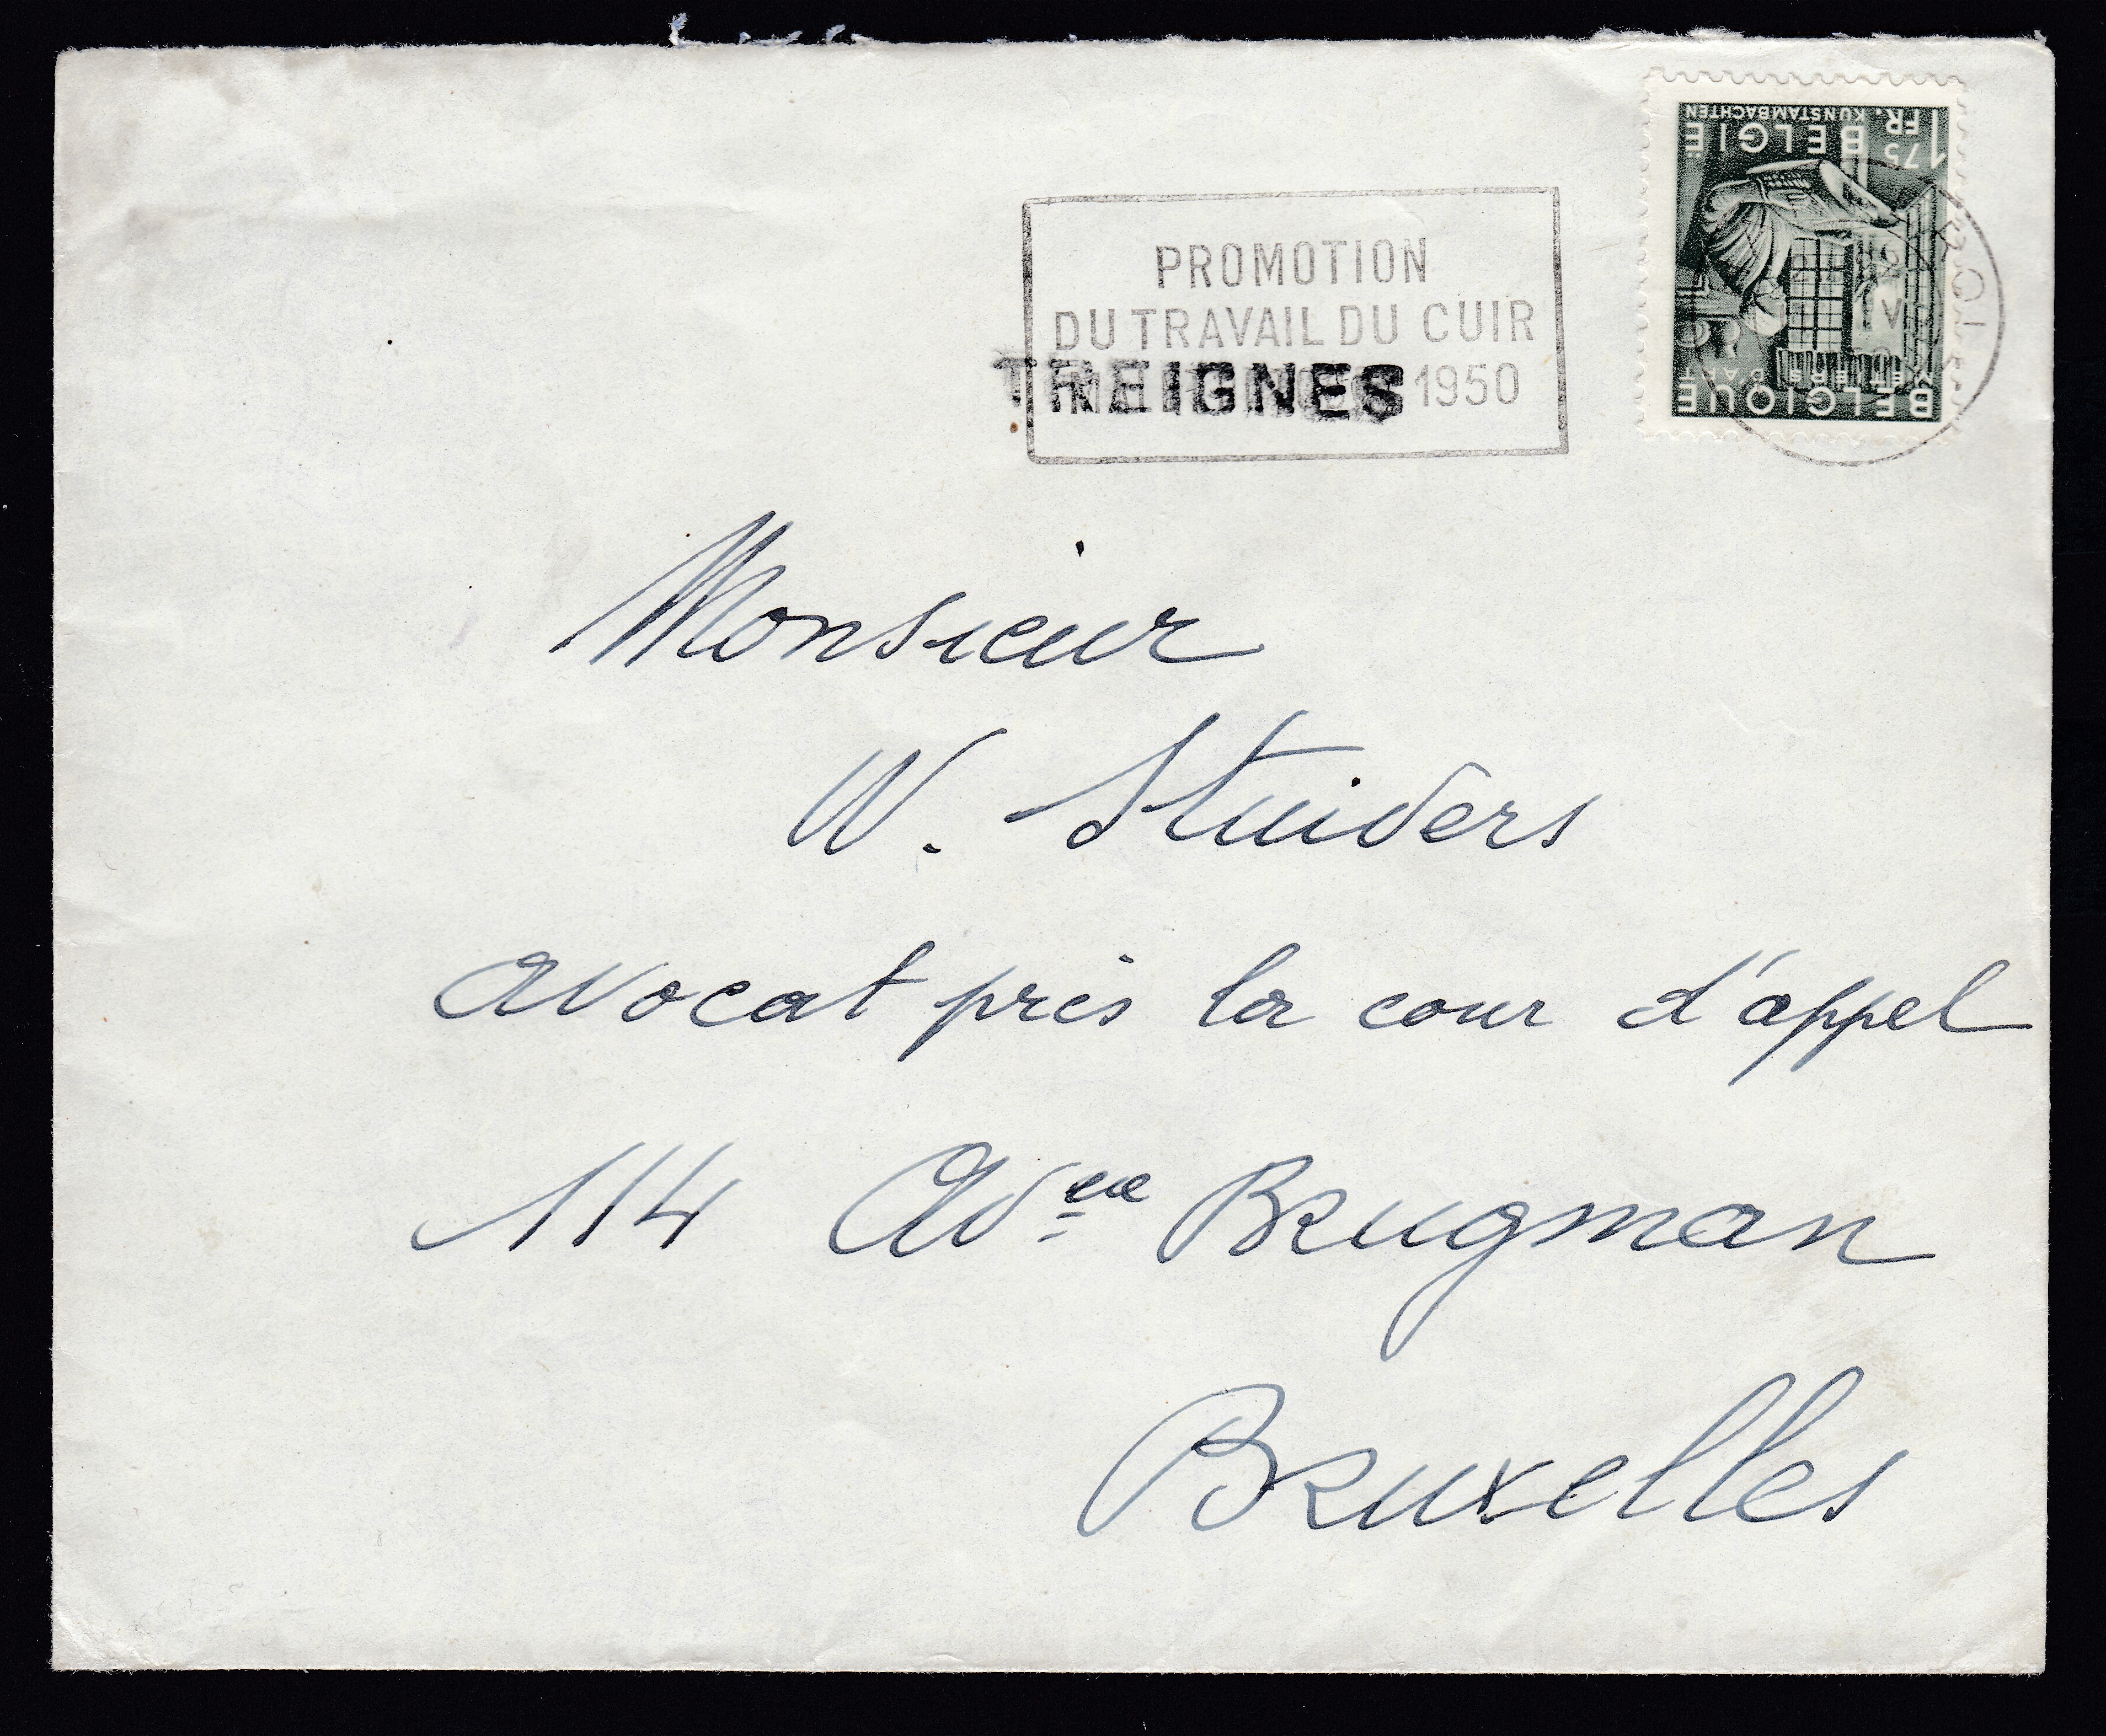 PROMOTION
DU TRAVAIL DU CUIR
1950
TREIGNES
BELGIQUE
METIERS D'ART
1 75
FR
BELGIË
KUNSTAMBACHTEN
Monsieur
W. Stuivers
avocat près la cour d'appel
114 Aveue Brugman
Bruxelles